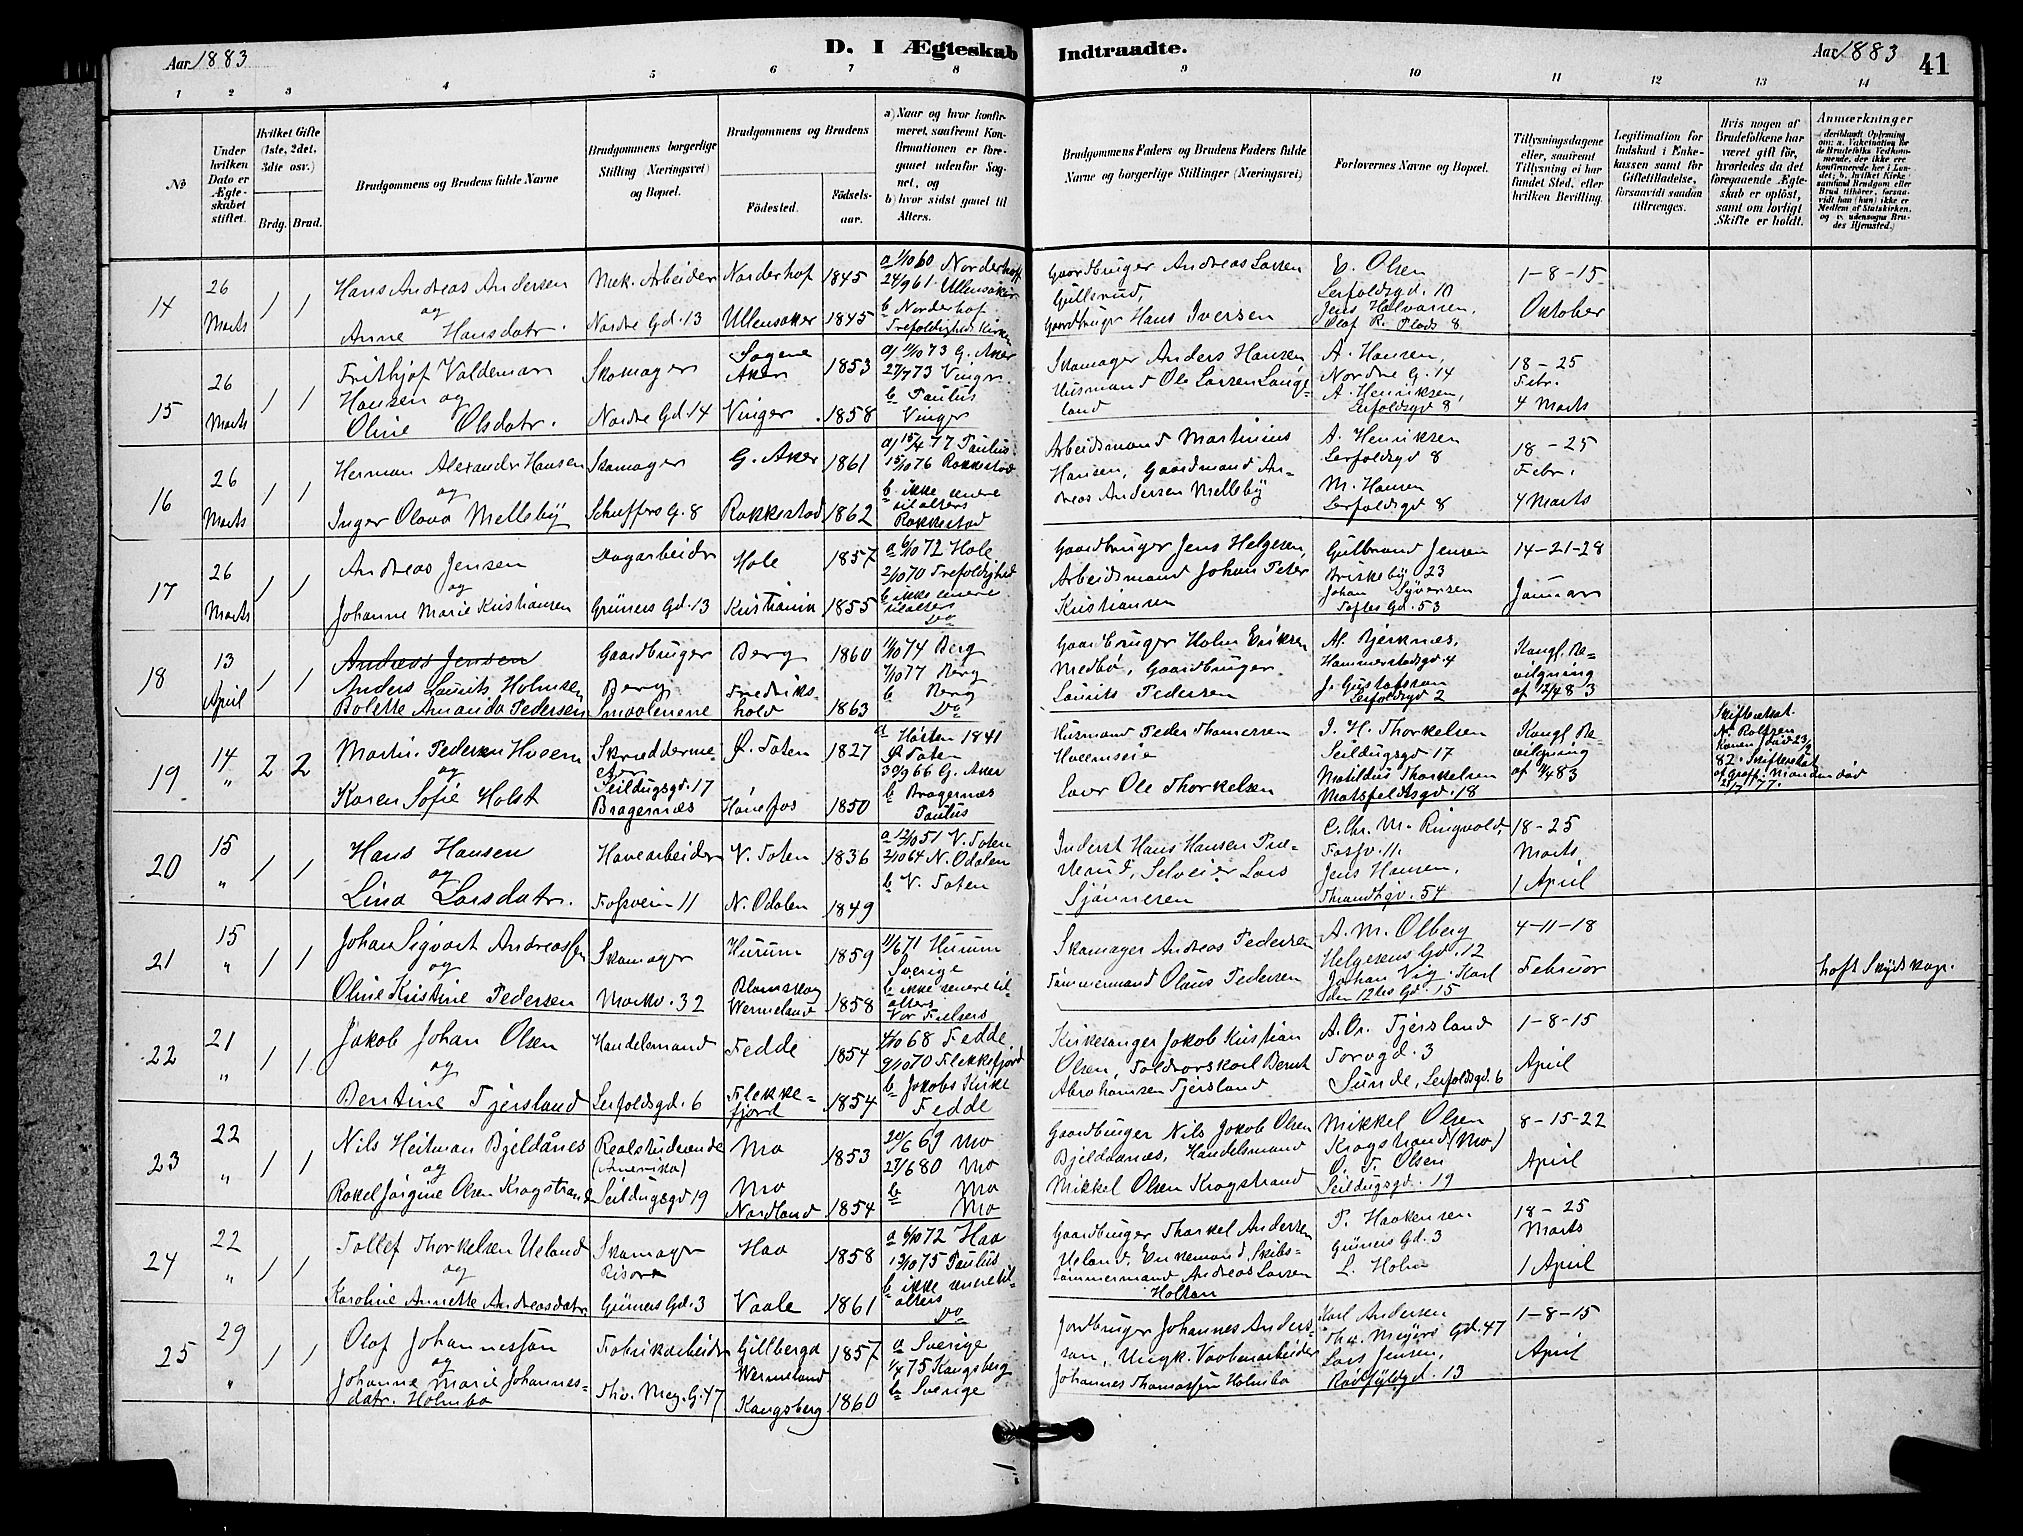 Aar 1883
D. I Ægteskab Indtraadte.
Aar 1883
41
1 2 3 4 5 6 7 8 9 10 11 12 13 14
No
Under hvilken Dato er Ægteskabet stiftet.
Hvilket Gifte (1ste, 2det, 3die osv.)
Brdg. Brud.
Brudgommens og Brudens fulde Navne
Brudgommens borgerlige Stilling (Næringsvei) og Bopæl.
Brudgommens og Brudens
Födested.
Födselsaar.
a) Naar og hvor konfirmeret, saafremt Konfirmationen er foregaaet udenfor Sognet, og
b) hvor sidst gaaet til Alters.
Brudgommens Faders og Brudens Faders fulde Navne og borgerlige Stillinger (Næringsvei)
Forlovernes Navne og Bopæl.
Tillysningsdagene eller, saafremt Tillysning ei har fundet Sted, efter hvilken Bevilling.
Legitimation for Indskud i Enkekassen samt for Giftetilladelse, forsaavidt saadan tiltrænges.
Hvis nogen af Brudefolkene har været gift för, hvorledes da det foregaaende Ægteskab er oplöst, samt om lovligt Skifte er holdt.
Anmærkninger
(deriblandt Oplysning om: a. Vakcination for de Brudefolks Vedkommende, der ikke ere konfirmerede her i Landet; b. hvilket Kirkesamfund Brudgom eller Brud tilhører, forsaavidt han (hun) ikke er Medlem af Statskirken, og c. udensogns Brudes Hjemsted.)
14
26 Marts
1 1
Hans Andreas Andersen
og
Anne Hansdatr.
Mek. Arbeider
Nordre Gd. 13
Norderhof 1845
Ullensaker 1845
a 1/10 60 Norderhof
24/9 61 Ullensaker
b Norderhof
Trefoldigheds Kirken
Gaardbruger Andreas Larsen
Gullerud,
Gaardbruger Hans Iversen
E. Olsen
Leirfoldsgd. 10
Jens Halvorsen,
Olaf R. Plads 8
1-8-15
Oktober
15
26 Marts
1 1
Frithjof Valdemar
Hansen og
Oline Olsdatr.
Skomager
Nordre Gd. 14
Sagene Aker 1853
Vinger 1858
a) 11/10 73 G. Aker
27/7 73 Vinger
b Paulus
Vinger
Skomager Anders Hansen
Husmand Ole Larsen Langeland
A. Hansen,
Nordre G. 14
A. Henriksen,
Leirfoldsgd 8
18-25
Febr.
4 Marts
16
26 Marts
1 1
Herman Alexander Hansen
og
Inger Olava Melleby
Skomager
Schuffers G. 8
G. Aker 1861
Rakkestad 1862
a) 15/4 77 Paulus
15/10 76 Rakkestad
b ikke senere
til alters
Rakkestad
Arbeidsmand Martinius
Hansen, Gaardmand Andreas Andersen Melleby
A. Henriksen
Leirfoldsgd 8
M. Hansen
Leirfoldsgd 8
18-25
Febr.
4 Marts
17
26 Marts
1 1
Andreas Jensen
og
Johanne Marie Kristiansen
Dagarbeider
Grüners Gd. 13
Hole 1857
Kristiania 1855
a 6/10 72 Hole
2/10 70 Trefoldighed
b ikke senere
til alters
Do
Gaardbruger Jens Helgesen,
Arbeidsmand Johan Peter
Kristiansen
Gulbrand Jensen
Briskeby 23
Johan Syversen
Toftes Gd. 53
14-21-28
Januar
18
13 April
1 1
Andreas Jensen
Anders Laurits Holmsen
Bolette Amanda Pedersen
Gaardbruger
Berg
Smaalenene
Berg 1860
Fredrikshald 1863
1/10 74 Berg
7/10 77 Berg
b Berg
Do
Gaardbruger Holm Eriksen
Medbø, Gaardbruger
Laurits Pedersen
A. Bjerknæs,
Hammerstadsgd. 4
J. Gustafson
Leirfoldsgd 2
Kongl. Bevilgning
af 12/4 83
19
14 "
2 2
Martin Pedersen Hveem
og
Karen Sofie Holst
Skræddermester
Seildugsgd. 17
Bragernæs
Ø. Toten 1827
Hønefos 1850
a Høsten 1841
Ø. Toten
30/9 66 G. Aker
b Bragernæs
Paulus
Husmand Peder Thomesen
Hveemseie
Laur Ole Thorkelsen
I. H. Thorkelsen
Seildugsgd 17
Matildus Thorkelsen
Motsfeldtsgd. 18
Kongl. Bevilgning
af 11/4 83
Skifteattest
N. Rolfsen
Konen død 23/2
82. Skifteattest
Manden død
21/7 77.
20
15 "
1 1
Hans Hansen
og
Lina Larsdatr.
Havearbeider
Fosveien 11
V. Toten 1836
N. Odalen 1849
a 12/10 51 V. Toten
2/10 64 N. Odalen
b V. Toten
Inderst Hans Hansen
Selveier Lars
Sjønnesen
C. Chr. M. Ringvold,
Fosv. 11.
Jens Hansen,
Throndhjv. 54
18-25
Marts
1 April
21
15 "
1 1
Johan Sigvart Andreassen
og
Oline Kristine Pedersen
Skomager
Markv. 32
Hurum 1859
Blomskog
Wermeland 1858
11/6 71 Hurum
Sverige
b ikke senere til
alters
Vor Frelsers
Skomager Andreas Pedersen
Tømmermand Olaus Pedersen
A. M. Olberg
Helgesens Gd. 12
Johan Vig. Karl
den 12tes Gd. 15
4-11-18
Februar
haft Skydskop.
22
21 "
1 1
Jakob Johan Olsen
og
Bentine Tjersland
Handelsmand
Leirfoldsgd. 6
Fedde 1854
Flekkefjord 1854
4/10 68 Fedde
9/10 70 Flekkefjord
b Jakobs Kirke
Fedde
Kirkesanger Jakob Kristian
Olsen, Toldvorskarl Bernt
Abrahamsen Tjersland
A. Tjersland
Torvgd. 3
Sunde, Leirfoldsgd. 6
1-8-15
April
23
22 "
1 1
Nils Heitman Bjeldånes
og
Rakel Jørgine Olsen Krogstrand
Realstuderende
(Amerika)
Seildugsgd 19
Mo 1853
Mo
Nordland 1854
20/6 69 Mo
27/6 80 Mo
b Mo
Mo
Gaardbruger Nils Jakob Olsen
Bjeldaanes, Handelsmand
Mikkel Olsen Krogstrand
Mikkel Olsen
Krogstrand (Mo)
O. T. Olsen
Seildugsgd. 19
8-15-22
April
24
22 "
1 1
Tollef Thorkelsen Ueland
og
Karoline Annette Andreasdatr.
Skomager
Risør
Grüners Gd. 3
Haa 1858
Vaale 1861
a 6/10 72 Haa
13/10 75 Paulus
b ikke senere til
alters
Do
Gaardbruger Thorkel Andersen
Ueland, Enkemand, Skibstømmermand Andreas Larsen
Holtan
T. Haakensen
Grüners Gd. 3
L. Holm
18-25
Marts
1 April
25
29 "
1 1
Olaf Johannessøn
og
Johanne Marie Johannesdatr. Holmbo
Fabrikarbeider
Thv. Mey. G. 47
Gillberga
Wermeland 1857
Kongsberg 1860
a Sverige
1/4 75 Kongsberg
b Sverige
Jordbruger Johannes Andersson, Ungk. Vaabenarbeider
Johannes Thomassen Holmbo
Karl Andersen
Thv. Meyers Gd. 47
Lars Jensen,
Rødfyldgd. 13
1-8-15
April